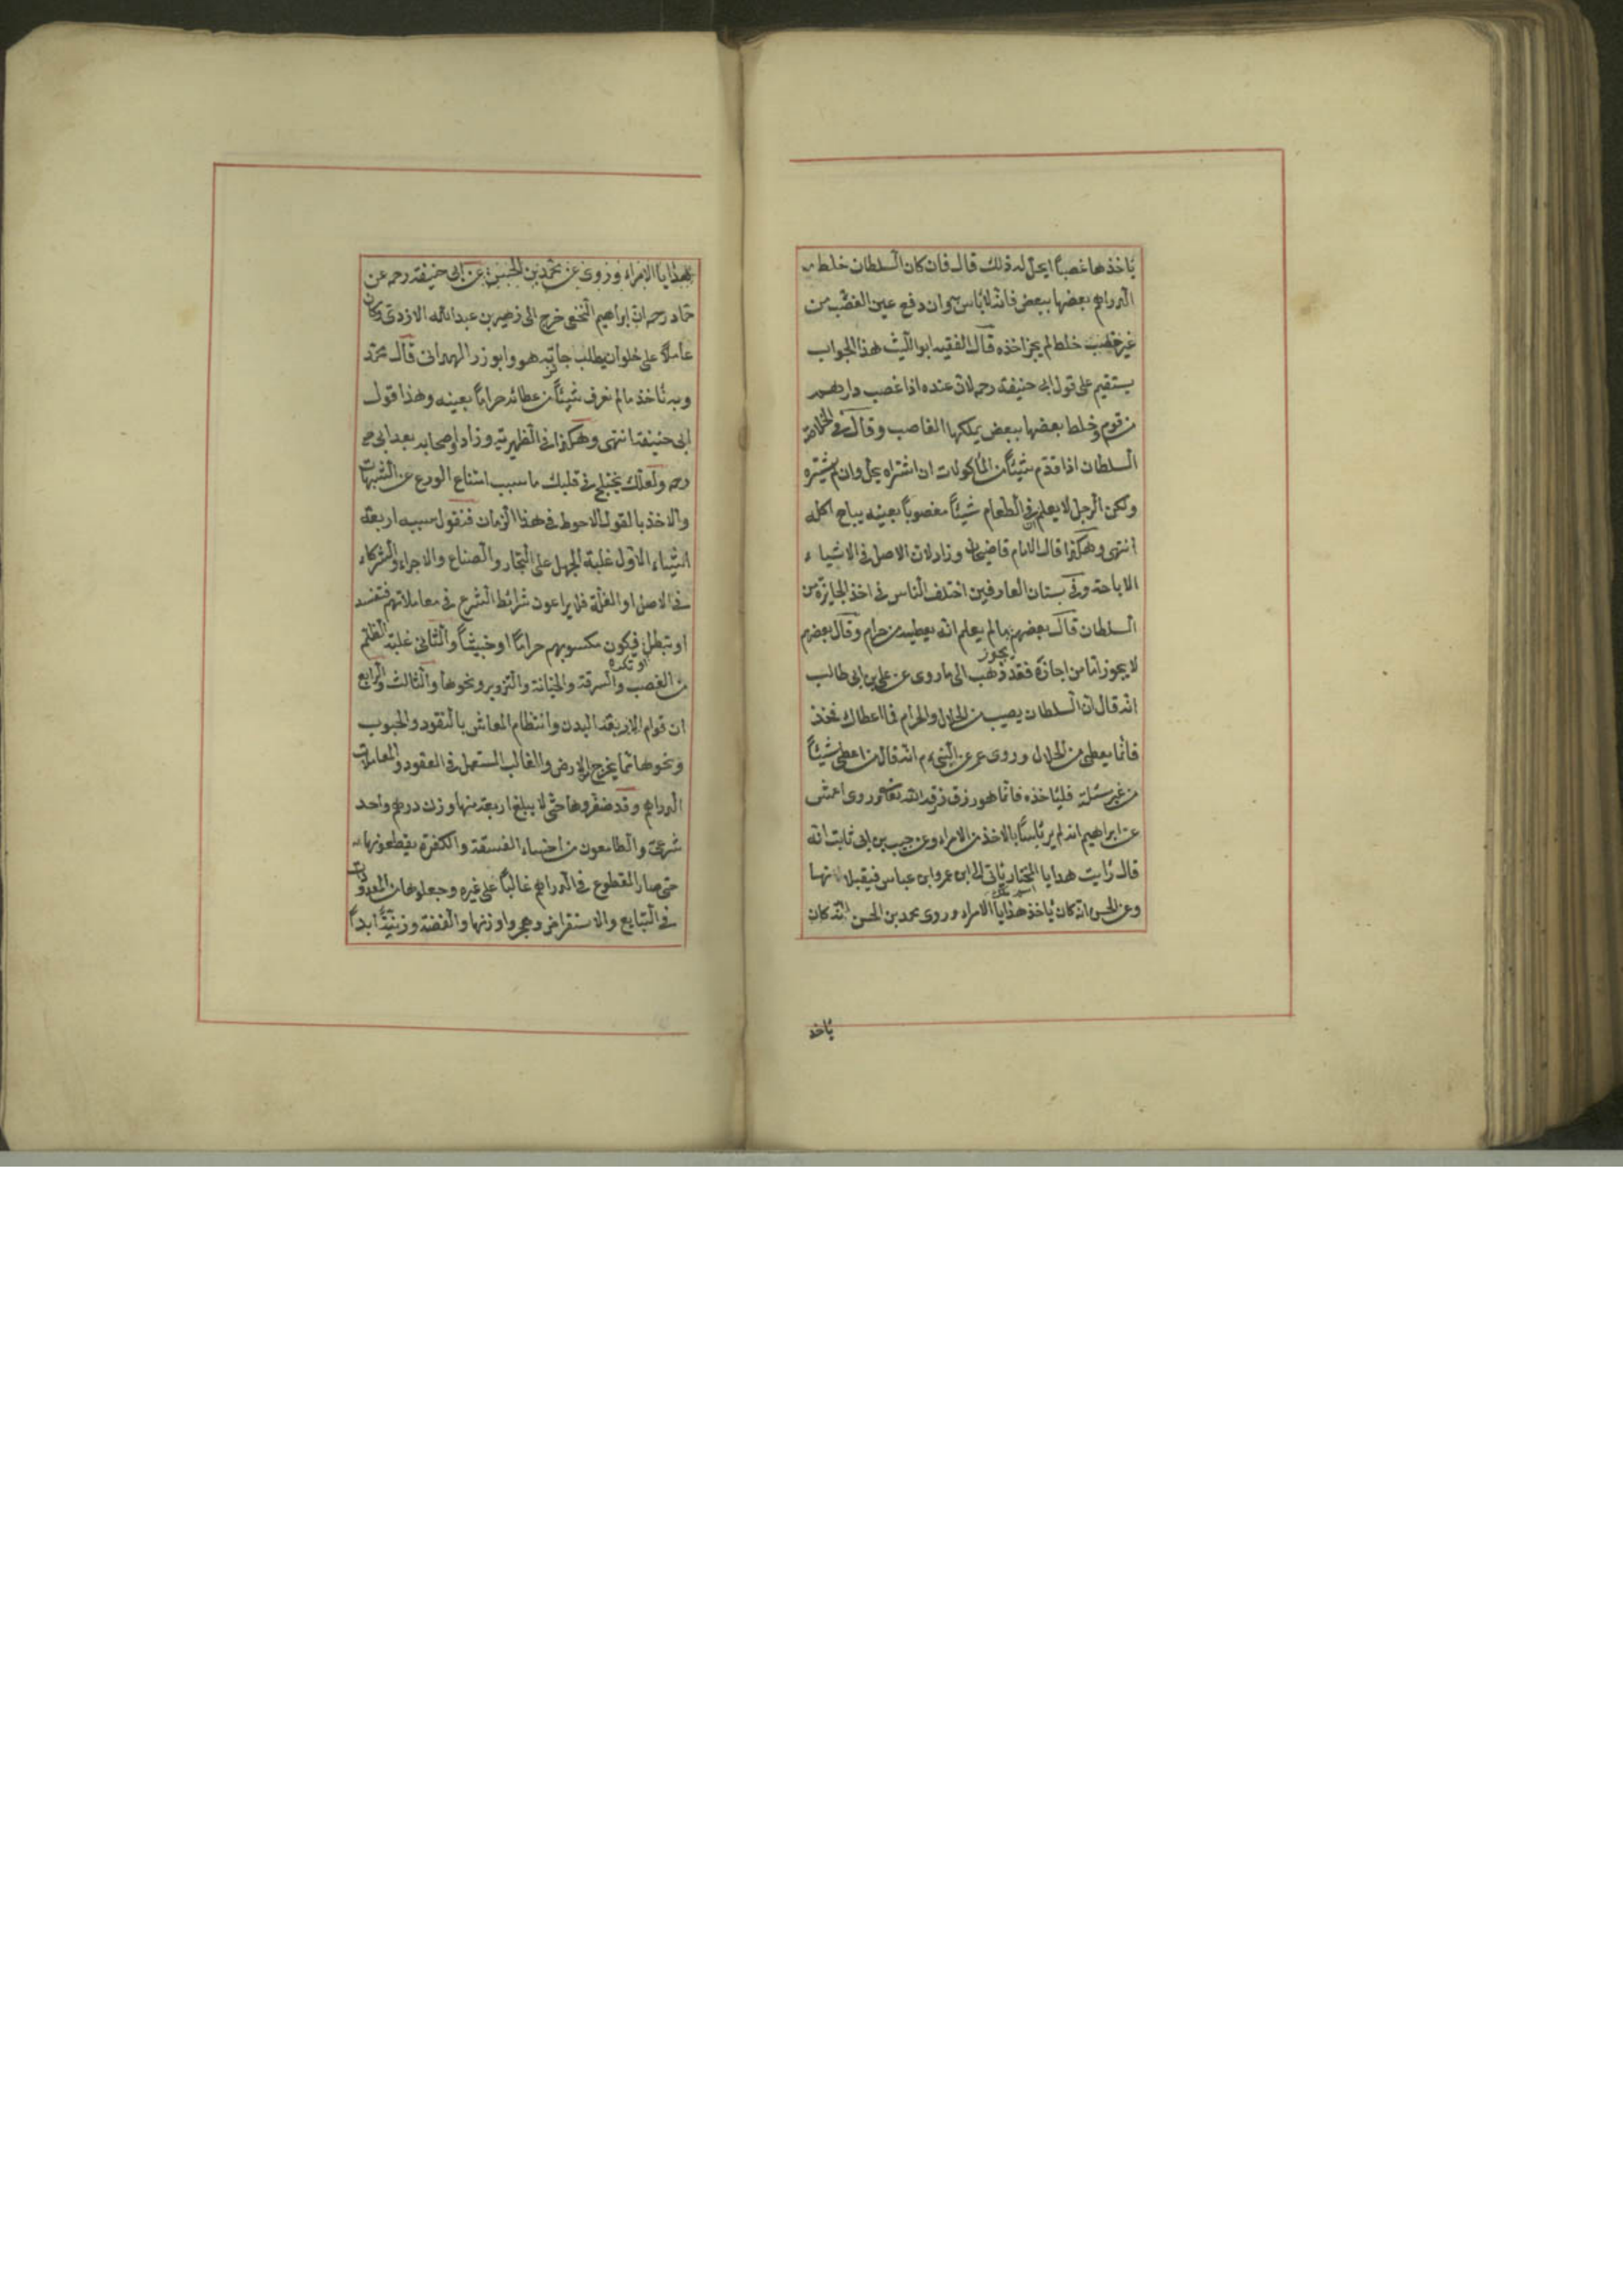 يأخذها غصباً ايحل له ذلك قال فان كان السلطان خلط
الدراهم بعضها ببعض فانه لا بأس به وان دفع عين الغصب من
غير خلط لم يجز اخذه قال الفقيه ابو الليث هذا الجواب
يستقيم على قول ابى حنيفة رحمه لان عنده اذا غصب دراهم
من قوم وخلط بعضها ببعض يملكها الغاصب وقال فى الخلاصة
السلطان اذا قدم شيئاً من المأكولات ان اشتراه يحل وان لم يشتره
ولكن الرجل لا يعلم فى الطعام شيئاً مغصوباً بعينه يباح اكله
انتهى وهكذا قال الامام قاضيخان وزاد لان الاصل فى الاشياء
الاباحة وفى بستان العارفين اختلف الناس فى اخذ الجايزة من
السلطان قال بعضهم يجوز ما لم يعلم انه يعطيه من حرام وقال بعضهم
لا يجوز اما من اجازه فقد ذهب الى ما روى عن على بن ابى طالب
انه قال ان السلطان يصيب من الحلال والحرام فما اعطاك فخذ
فانما يعطى من الحلال وروى عمر عن النبى م انه قال من اعطى شيئاً
من غير مسئلة فليأخذه فانما هو رزق رزقه الله تعالى وروى اعمش
عن ابراهيم انه لم ير بأساً بالاخذ من الامراء وعن حبيب بن ابى ثابت انه
قال رأيت هدايا المختار يأتى الى ابن عمر وابن عباس فيقبلانها
وعن الحسن انه كان يأخذ هدايا الامراء وروى محمد بن الحسن انه كان
يأخذ
هدايا الامراء وروى عن محمد بن الحسن عن ابى حنيفة رحمه عن
حماد رحمه ان ابراهيم النخعى خرج الى زهير بن عبدالله الازدى وكان
عاملاً على حلوان يطلب جائزته هو وابو ذر الهمدانى قال محمد
وبه نأخذ ما لم نعرف شيئاً من عطائه حراماً بعينه وهذا قول
ابى حنيفة انتهى وهكذا فى الظهيرية وزاد واصحابه بعد ابى ح
رحمه ولعلك يختلج فى قلبك ما سبب امتناع الورع عن الشبهات
والاخذ بالقول الاحوط فى هذا الزمان فنقول سببه اربعة
اشياء الاول غلبة الجهل على التجار والصناع والاجراء والشركاء
فى الاصل او الغلة فلا يراعون شرائط الشرع فى معاملاتهم فتفسد
او تبطل او تكره فيكون مكسوبهم حراماً او خبيثاً والثانى غلبة الظلم
من الغصب والسرقة والخيانة والتزوير ونحوها والثالث والرابع
ان قوام البدن وانتظام المعاش بالنقود والحبوب
ونحوها مما يخرج من الارض والغالب المستعمل فى العقود والمعاملات
الدراهم وقد صغروها حتى لا يبلغ اربعة منها وزن درهم واحد
شرعى والطامعون من اخساء الفسقة والكفرة يقطعونها
حتى صار المقطوع فى الدراهم غالباً على غيره وجعلوها من المعدودات
فى التبايع والاستقراض وهجروا وزنها والفضة وزنية ابداً